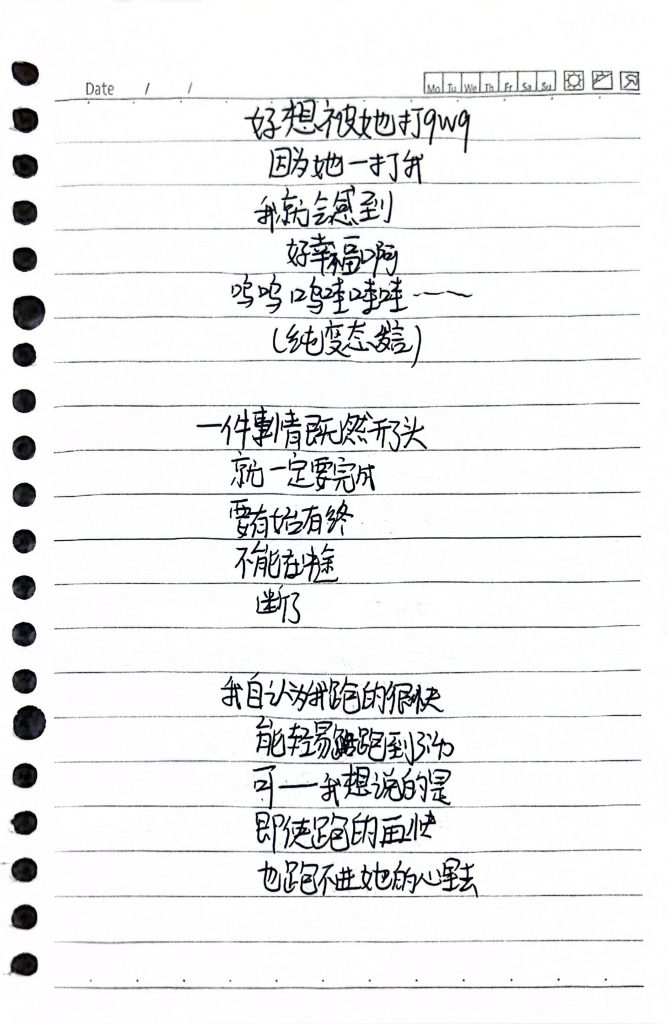 Date / /
Mo Tu We Th Fr Sa Su
好想被她打qwq
因为她一打我
我就会感到
好幸福啊
呜呜呜哇哇哇——
(纯变态发言)
一件事情既然开了头
就一定要完成
要有始有终
不能在半途
断了
我自认为我跑的很快
能轻易跑到
可——我想说的是
即使跑的再快
也跑不进她的心里去